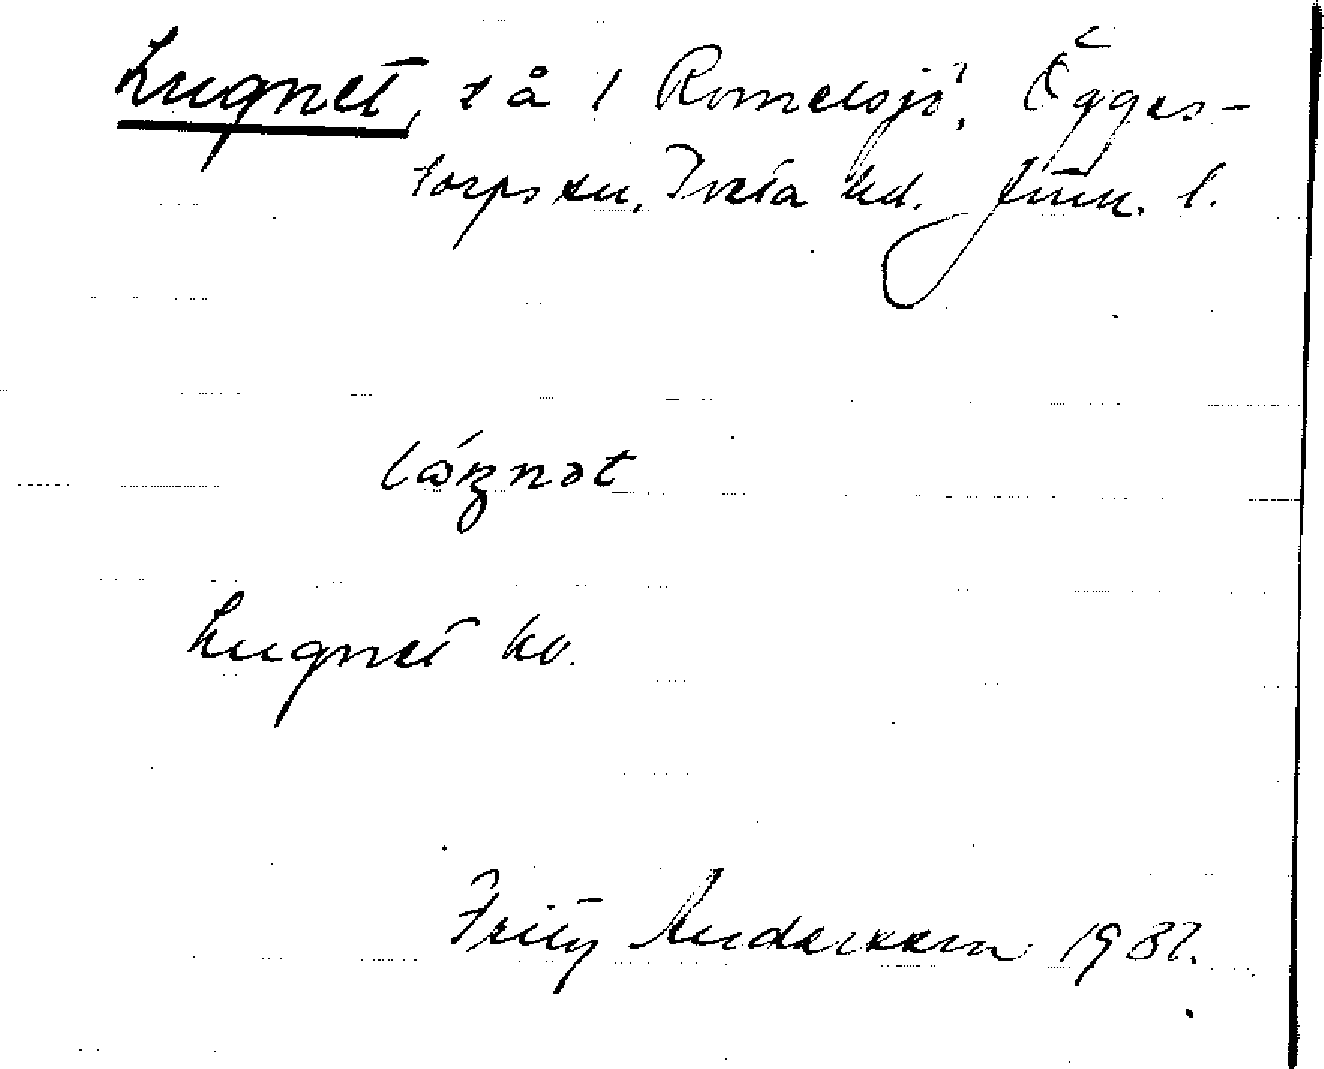 Lugnet, t å i Romelsjö, Ögges-
torps sn, Tveta hd. Jönk. l.
Lugnet kv.
Fritz Andersson 1932.